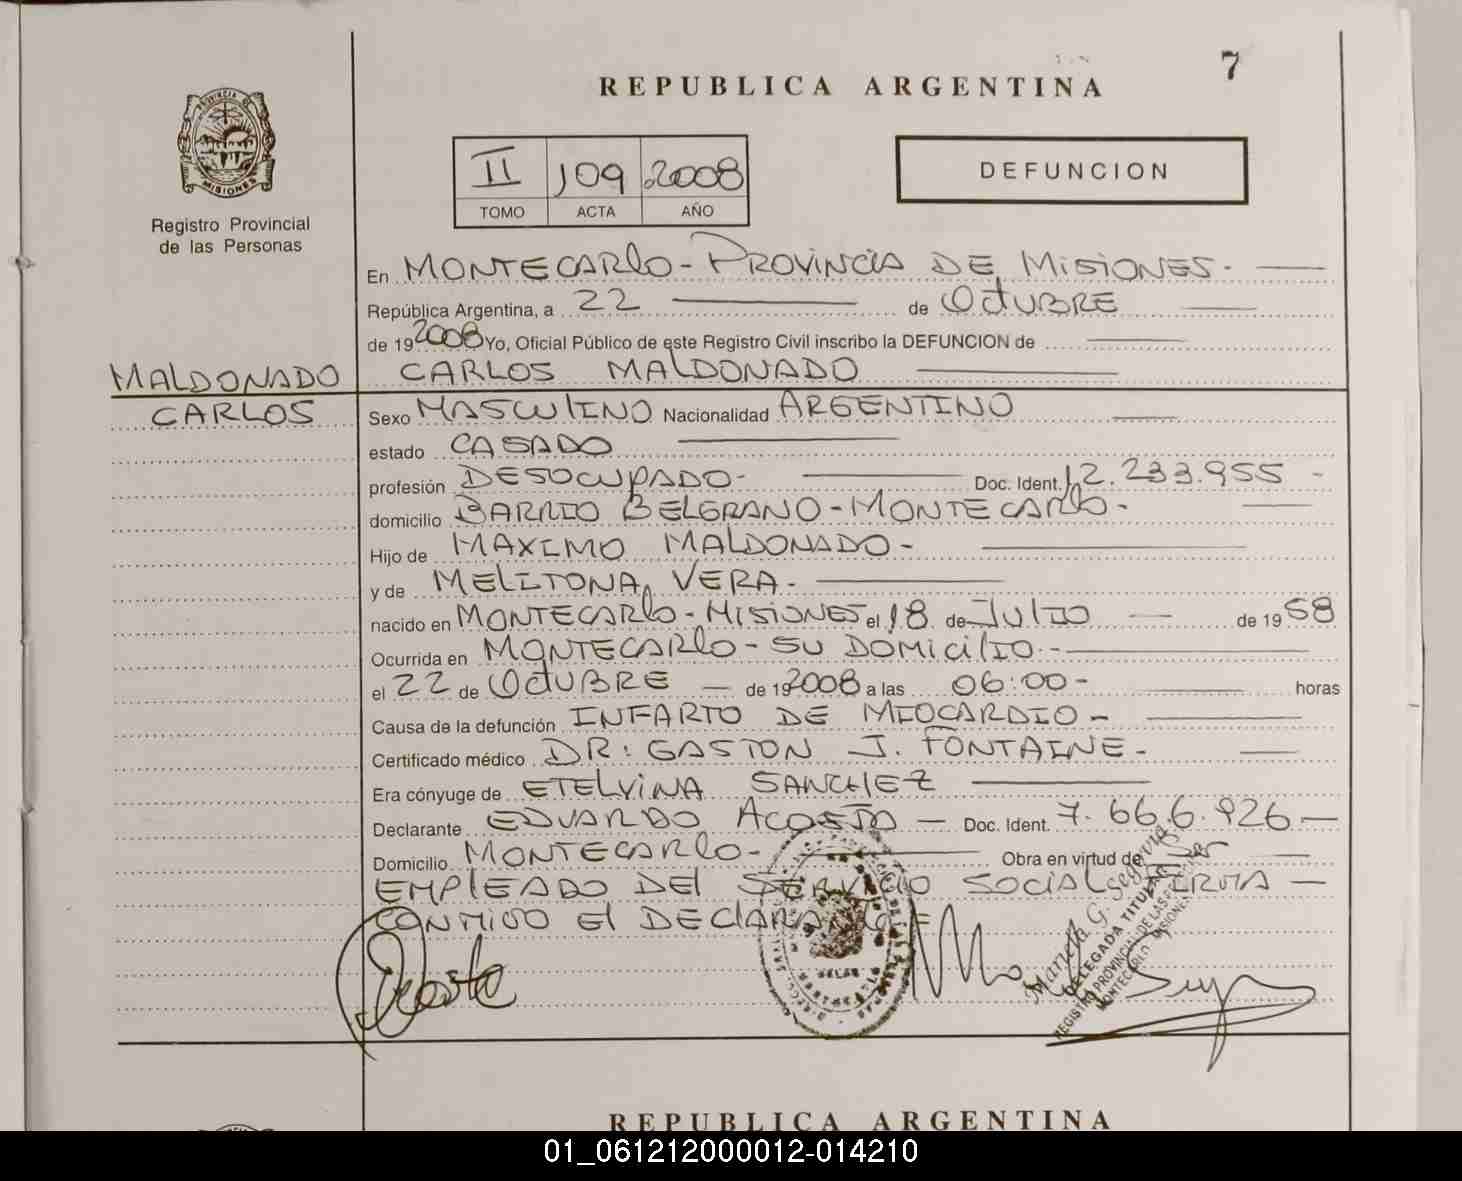 7
REPUBLICA ARGENTINA
PROVINCIA DE
MISIONES
Registro Provincial
de las Personas
II 109 2008
TOMO ACTA AÑO
DEFUNCION
En MONTECARLO - PROVINCIA DE MISIONES -
República Argentina, a 22 de OCTUBRE
de 19 2008 Yo, Oficial Público de este Registro Civil inscribo la DEFUNCION de
MALDONADO
CARLOS
CARLOS MALDONADO
Sexo MASCULINO Nacionalidad ARGENTINO
estado CASADO
profesión DESOCUPADO - Doc. Ident. 12.233.955 -
domicilio BARRIO BELGRANO - MONTECARLO -
Hijo de MAXIMO MALDONADO -
y de MELITONA VERA -
nacido en MONTECARLO - MISIONES el 18 de JULIO de 19 58
Ocurrida en MONTECARLO - SU DOMICILIO -
el 22 de OCTUBRE de 19 2008 a las 06:00 - horas
Causa de la defunción INFARTO DE MIOCARDIO -
Certificado médico DR: GASTON J. FONTAINE -
Era cónyuge de ETELVINA SANCHEZ
Declarante EDUARDO ACOSTA - Doc. Ident. 7.666.926 -
Domicilio MONTECARLO - Obra en virtud de Ser
EMPLEADO DEL SERVICIO SOCIAL FIRMA -
CONMIGO El DECLARANTE
Acosta
Mariela G. Segovia
DELEGADA TITULAR
REGISTRO PROVINCIAL DE LAS PERSONAS
MONTECARLO - MISIONES
REPUBLICA ARGENTINA
01_061212000012-014210